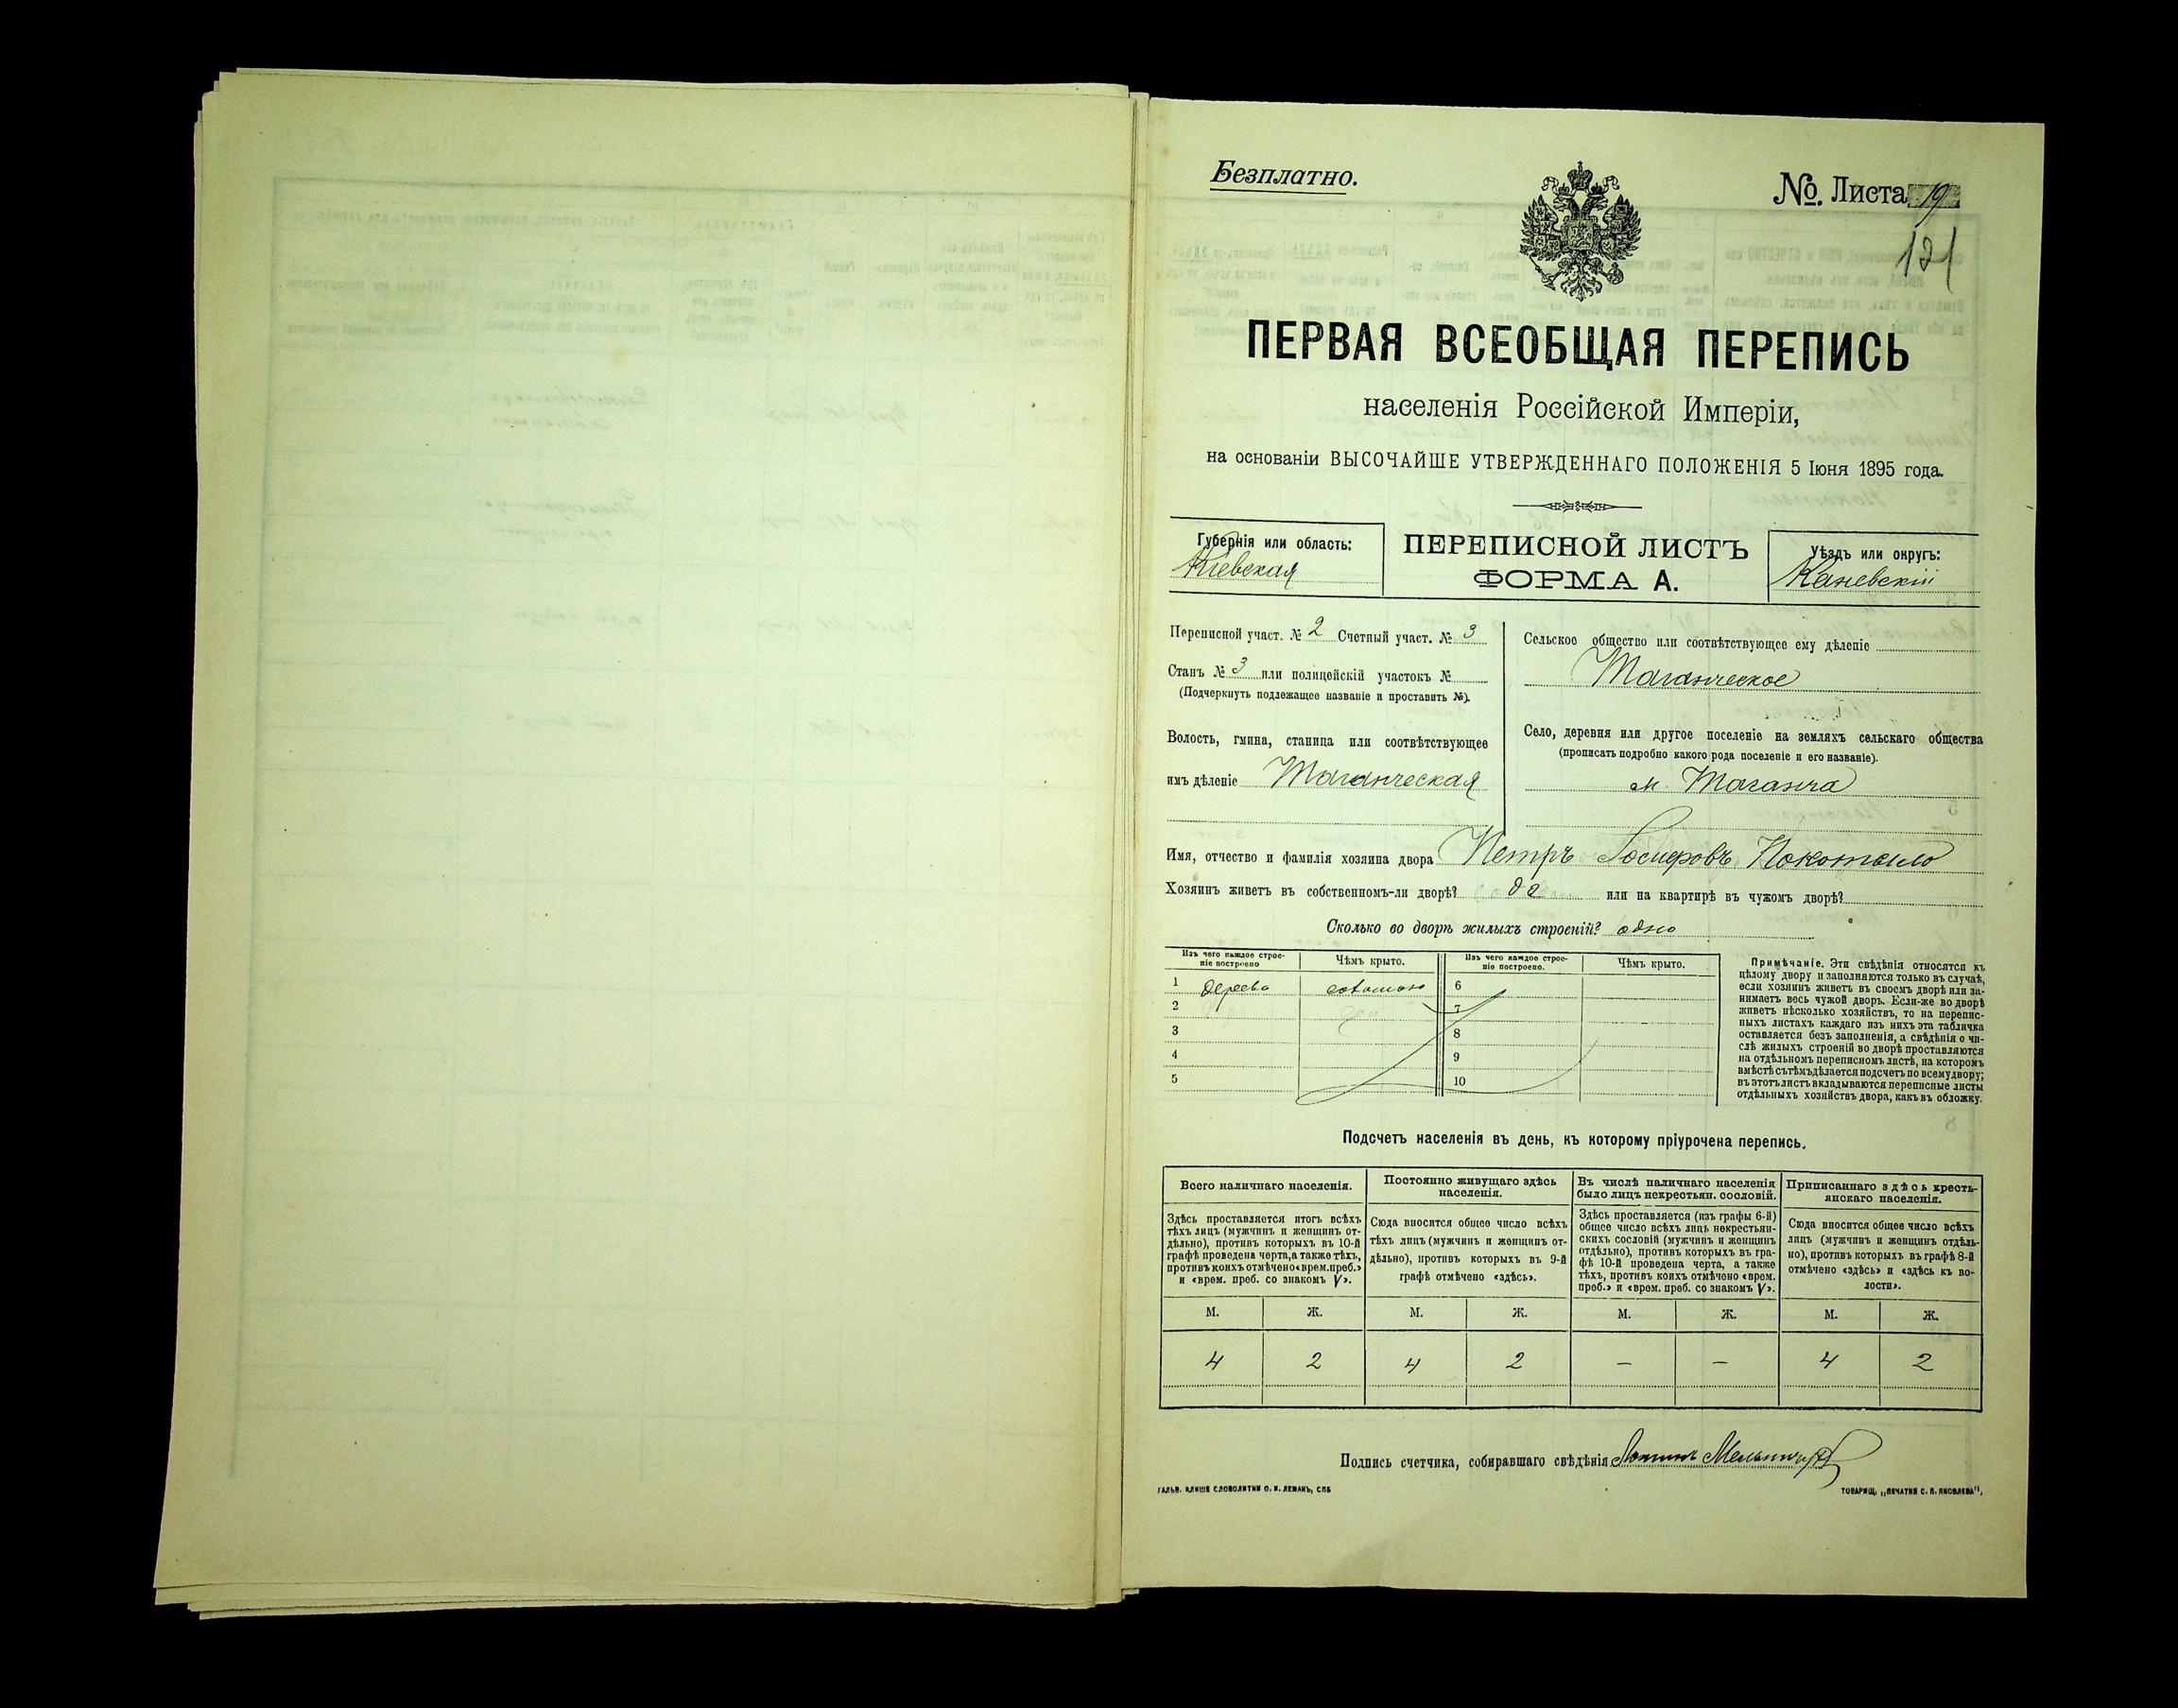 Безплатно.
№. Листа 19
121
ПЕРВАЯ ВСЕОБЩАЯ ПЕРЕПИСЬ
населенія Россійской Имперіи,
на основаніи ВЫСОЧАЙШЕ УТВЕРЖДЕННАГО ПОЛОЖЕНІЯ 5 Іюня 1895 года.
Губернія или область:
Кіевская
ПЕРЕПИСНОЙ ЛИСТЪ
ФОРМА А.
Уѣздъ или округъ:
Каневскій
Переписной участ. № 2 Счетный участ. № 3
Станъ № 3 или полицейскій участокъ №
(Подчеркнуть подлежащее названіе и проставить №).
Волость, гмина, станица или соотвѣтствующее
имъ дѣленіе Таганческая
Сельское общество или соотвѣтствующее ему дѣленіе
Таганческое
Село, деревня или другое поселеніе на земляхъ сельскаго общества
(прописать подробно какого рода поселеніе и его названіе).
м. Таганча
Имя, отчество и фамилія хозяина двора Петръ Іосифовъ Покотило
Хозяинъ живетъ въ собственномъ-ли дворѣ? да или на квартирѣ въ чужомъ дворѣ?
Сколько во дворѣ жилыхъ строеній? одно
Изъ чего каждое строе-
ніе построено
Чѣмъ крыто.
Изъ чего каждое строе-
ніе построено.
Чѣмъ крыто.
1 дерева соломою 6
2 7
3 8
4 9
5 10
Примѣчаніе. Эти свѣдѣнія относятся къ
цѣлому двору и заполняются только въ случаѣ,
если хозяинъ живетъ въ своемъ дворѣ или за-
нимаетъ весь чужой дворъ. Если-же во дворѣ
живетъ нѣсколько хозяйствъ, то на перепис-
ныхъ листахъ каждаго изъ нихъ эта табличка
оставляется безъ заполненія, а свѣдѣнія о чи-
слѣ жилыхъ строеній во дворѣ проставляются
на отдѣльномъ переписномъ листѣ, на которомъ
вмѣстѣ съ тѣмъ дѣлается подсчетъ по всему двору;
въ этотъ листъ вкладываются переписные листы
отдѣльныхъ хозяйствъ двора, какъ въ обложку.
Подсчетъ населенія въ день, къ которому пріурочена перепись.
Всего наличнаго населенія.
Здѣсь проставляется итогъ всѣхъ
тѣхъ лицъ (мужчинъ и женщинъ от-
дѣльно), противъ которыхъ въ 10-й
графѣ проведена черта, а также тѣхъ,
противъ коихъ отмѣчено «врем. преб.»
и «врем. преб. со знакомъ V».
Постоянно живущаго здѣсь
населенія.
Сюда вносится общее число всѣхъ
тѣхъ лицъ (мужчинъ и женщинъ от-
дѣльно), противъ которыхъ въ 9-й
графѣ отмѣчено «здѣсь».
Въ числѣ наличнаго населенія
было лицъ некрестьян. сословій.
Здѣсь проставляется (изъ графы 6-й)
общее число всѣхъ лицъ некрестьян-
скихъ сословій (мужчинъ и женщинъ
отдѣльно), противъ которыхъ въ гра-
фѣ 10-й проведена черта, а также
тѣхъ, противъ коихъ отмѣчено «врем.
преб.» и «врем. преб. со знакомъ V».
Приписаннаго здѣсь кресть-
янскаго населенія.
Сюда вносится общее число всѣхъ
лицъ (мужчинъ и женщинъ отдѣль-
но), противъ которыхъ въ графѣ 8-й
отмѣчено «здѣсь» и «здѣсь къ во-
лости».
М. Ж. М. Ж. М. Ж. М. Ж.
4 2 4 2 — — 4 2
Подпись счетчика, собиравшаго свѣдѣнія Мельничук
ГАЛЬВ. КЛИШЕ СЛОВОЛИТНИ О. И. ЛЕМАНЪ, СПБ
ТОВАРИЩ. „ПЕЧАТНИ С. П. ЯКОВЛЕВА",